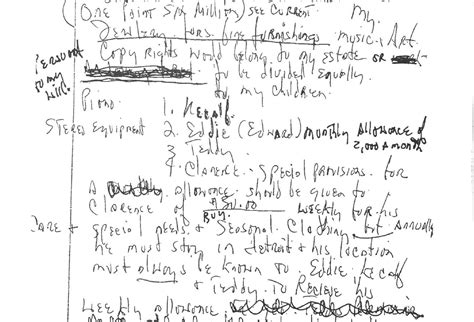 (One Point Six Million) see current my.
Jewelry furs fine furnishings music. Art.
Pursuant to my will.
Copy Rights would belong to my estate or
to be divided equally.
to my children.
Piano 1. Kecalf.
Stereo Equipment 2. Eddie (Edward) monthly allowance of 2,000 a month
3 Teddy.
4. Clarence. Special provisions for
A allowance should be given to
Clarence of weekly for his
Care + special needs + seasonal Clothing, annually
He must stay in Detroit + his location
must always be known to. Eddie. Kecalf
+ Teddy. To Receive his
weekly allowance,